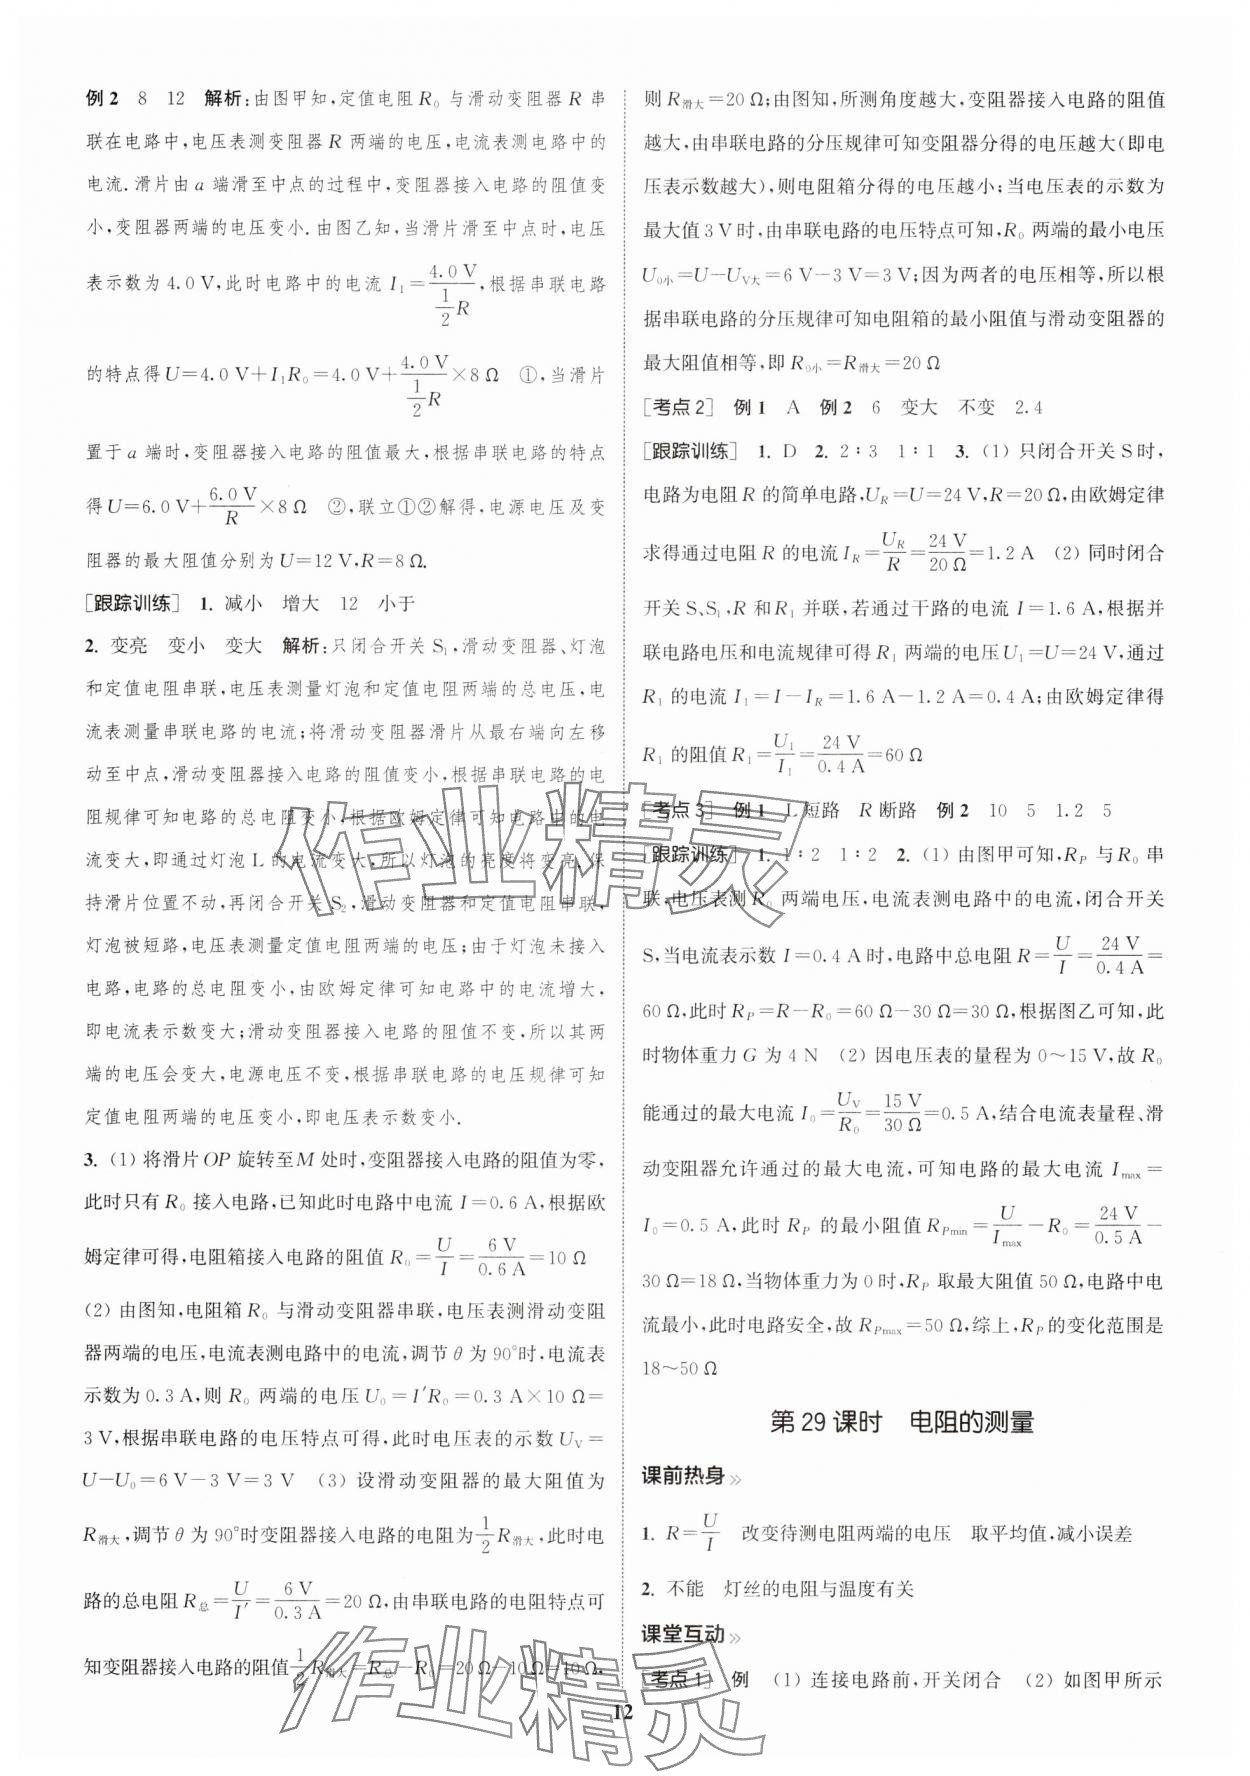 例2　8　12　解析:由图甲知,定值电阻 R₀ 与滑动变阻器 R 串
联在电路中,电压表测变阻器 R 两端的电压,电流表测电路中的
电流.滑片由 a 端滑至中点的过程中,变阻器接入电路的阻值变
小,变阻器两端的电压变小.由图乙知,当滑片滑至中点时,电压
表示数为 4.0 V,此时电路中的电流 I₁=4.0 V/(1/2 R),根据串联电路
的特点得U=4.0 V+I₁R₀=4.0 V+4.0 V/(1/2 R)×8 Ω　①,当滑片
置于 a 端时,变阻器接入电路的阻值最大,根据串联电路的特点
得 U=6.0 V+6.0 V/R×8 Ω　②,联立①②解得,电源电压及变
阻器的最大阻值分别为 U=12 V,R=8 Ω.
[跟踪训练]　1. 减小　增大　12　小于
2. 变亮　变小　变大　解析:只闭合开关 S₁,滑动变阻器、灯泡
和定值电阻串联,电压表测量灯泡和定值电阻两端的总电压,电
流表测量串联电路的电流;将滑动变阻器滑片从最右端向左移
动至中点,滑动变阻器接入电路的阻值变小,根据串联电路的电
阻规律可知电路的总电阻变小,根据欧姆定律可知电路中的电
流变大,即通过灯泡 L 的电流变大,所以灯泡的亮度将变亮.保
持滑片位置不动,再闭合开关 S₂,滑动变阻器和定值电阻串联,
灯泡被短路,电压表测量定值电阻两端的电压;由于灯泡未接入
电路,电路的总电阻变小,由欧姆定律可知电路中的电流增大,
即电流表示数变大;滑动变阻器接入电路的阻值不变,所以其两
端的电压会变大,电源电压不变,根据串联电路的电压规律可知
定值电阻两端的电压变小,即电压表示数变小.
3. (1) 将滑片 OP 旋转至 M 处时,变阻器接入电路的阻值为零,
此时只有 R₀ 接入电路,已知此时电路中电流 I=0.6 A,根据欧
姆定律可得,电阻箱接入电路的阻值 R₀=U/I=6 V/0.6 A=10 Ω
(2) 由图知,电阻箱 R₀ 与滑动变阻器串联,电压表测滑动变阻
器两端的电压,电流表测电路中的电流,调节 θ 为 90°时,电流表
示数为 0.3 A,则 R₀ 两端的电压 U₀=I′R₀=0.3 A×10 Ω=
3 V,根据串联电路的电压特点可得,此时电压表的示数 U_V=
U-U₀=6 V-3 V=3 V　(3) 设滑动变阻器的最大阻值为
R滑大,调节 θ 为 90°时变阻器接入电路的电阻为1/2 R滑大,此时电
路的总电阻 R总=U/I′=6 V/0.3 A=20 Ω,由串联电路的电阻特点可
知变阻器接入电路的阻值1/2 R滑大=R总-R₀=20 Ω-10 Ω=10 Ω,
则 R滑大=20 Ω;由图知,所测角度越大,变阻器接入电路的阻值
越大,由串联电路的分压规律可知变阻器分得的电压越大(即电
压表示数越大),则电阻箱分得的电压越小;当电压表的示数为
最大值 3 V 时,由串联电路的电压特点可知,R₀ 两端的最小电压
U₀小=U-U_V大=6 V-3 V=3 V;因为两者的电压相等,所以根
据串联电路的分压规律可知电阻箱的最小阻值与滑动变阻器的
最大阻值相等,即 R₀小=R滑大=20 Ω
[考点2]　例1　A　例2　6　变大　不变　2.4
[跟踪训练]　1. D　2. 2∶3　1∶1　3. (1) 只闭合开关 S 时,
电路为电阻 R 的简单电路,U_R=U=24 V,R=20 Ω,由欧姆定律
求得通过电阻 R 的电流 I_R=U_R/R=24 V/20 Ω=1.2 A　(2) 同时闭合
开关 S、S₁,R 和 R₁ 并联,若通过干路的电流 I=1.6 A,根据并
联电路电压和电流规律可得 R₁ 两端的电压 U₁=U=24 V,通过
R₁ 的电流 I₁=I-I_R=1.6 A-1.2 A=0.4 A;由欧姆定律得
R₁ 的阻值 R₁=U₁/I₁=24 V/0.4 A=60 Ω
[考点3]　例1　L 短路　R 断路　例2　10　5　1.2　5
[跟踪训练]　1. 1∶2　1∶2　2. (1) 由图甲可知,R_P 与 R₀ 串
联,电压表测 R₀ 两端电压,电流表测电路中的电流,闭合开关
S,当电流表示数 I=0.4 A 时,电路中总电阻 R=U/I=24 V/0.4 A=
60 Ω,此时 R_P=R-R₀=60 Ω-30 Ω=30 Ω,根据图乙可知,此
时物体重力 G 为 4 N　(2) 因电压表的量程为 0～15 V,故 R₀
能通过的最大电流 I₀=U_V/R₀=15 V/30 Ω=0.5 A,结合电流表量程、滑
动变阻器允许通过的最大电流,可知电路的最大电流 I_max=
I₀=0.5 A,此时 R_P 的最小阻值 R_Pmin=U/I_max-R₀=24 V/0.5 A-
30 Ω=18 Ω,当物体重力为 0 时,R_P 取最大阻值 50 Ω,电路中电
流最小,此时电路安全,故 R_Pmax=50 Ω,综上,R_P的变化范围是
18～50 Ω
第 29 课时　电阻的测量
课前热身»
1. R=U/I　改变待测电阻两端的电压　取平均值,减小误差
2. 不能　灯丝的电阻与温度有关
课堂互动»
[考点1]　例　(1) 连接电路前,开关闭合　(2) 如图甲所示
12
作业精灵
作业精灵